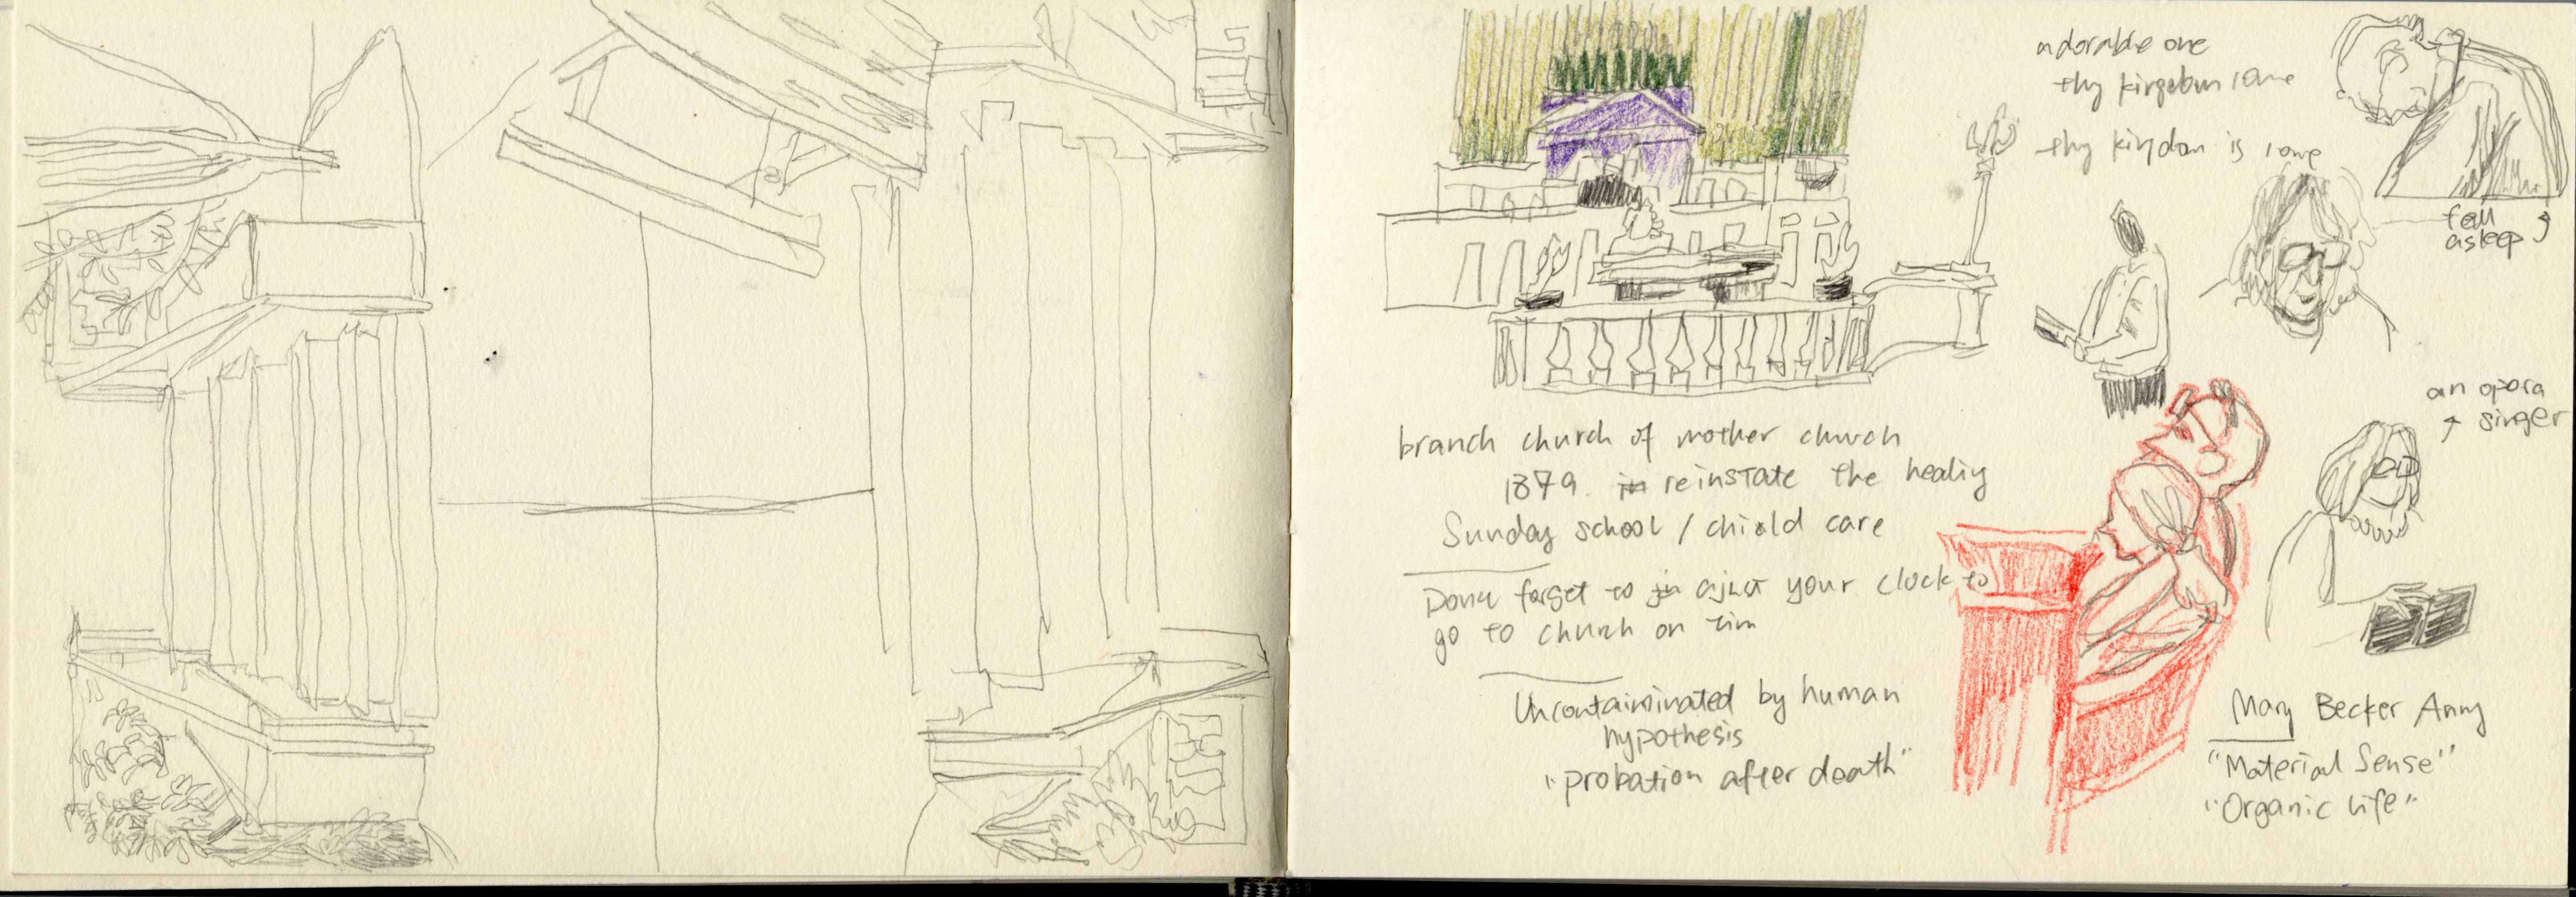 adorable one
thy kingdom come
thy kingdom is come
fell
asleep
an opera
singer
branch church of mother church
1879. in reinstate the healing
Sunday school / chiold care
Dont forget to ajust your clock to
go to church on tim
Uncontaiminated by human
hypothesis
"probation after death"
Mary Becker Anny
"Material Sense"
"Organic life"